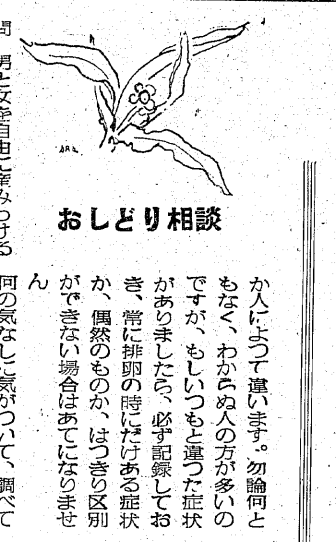 おしどり相談
問 男と女を自由に産みわける
か人によつて違います。勿論何と
もなく、わからぬ人の方が多いの
ですが、もしいつもと違つた症状
がありましたら、必ず記録してお
き、常に排卵の時にだけある症状
か、偶然のものか、はつきり区別
ができない場合はあてになりませ
ん
何の気なしに気がついて、調べて